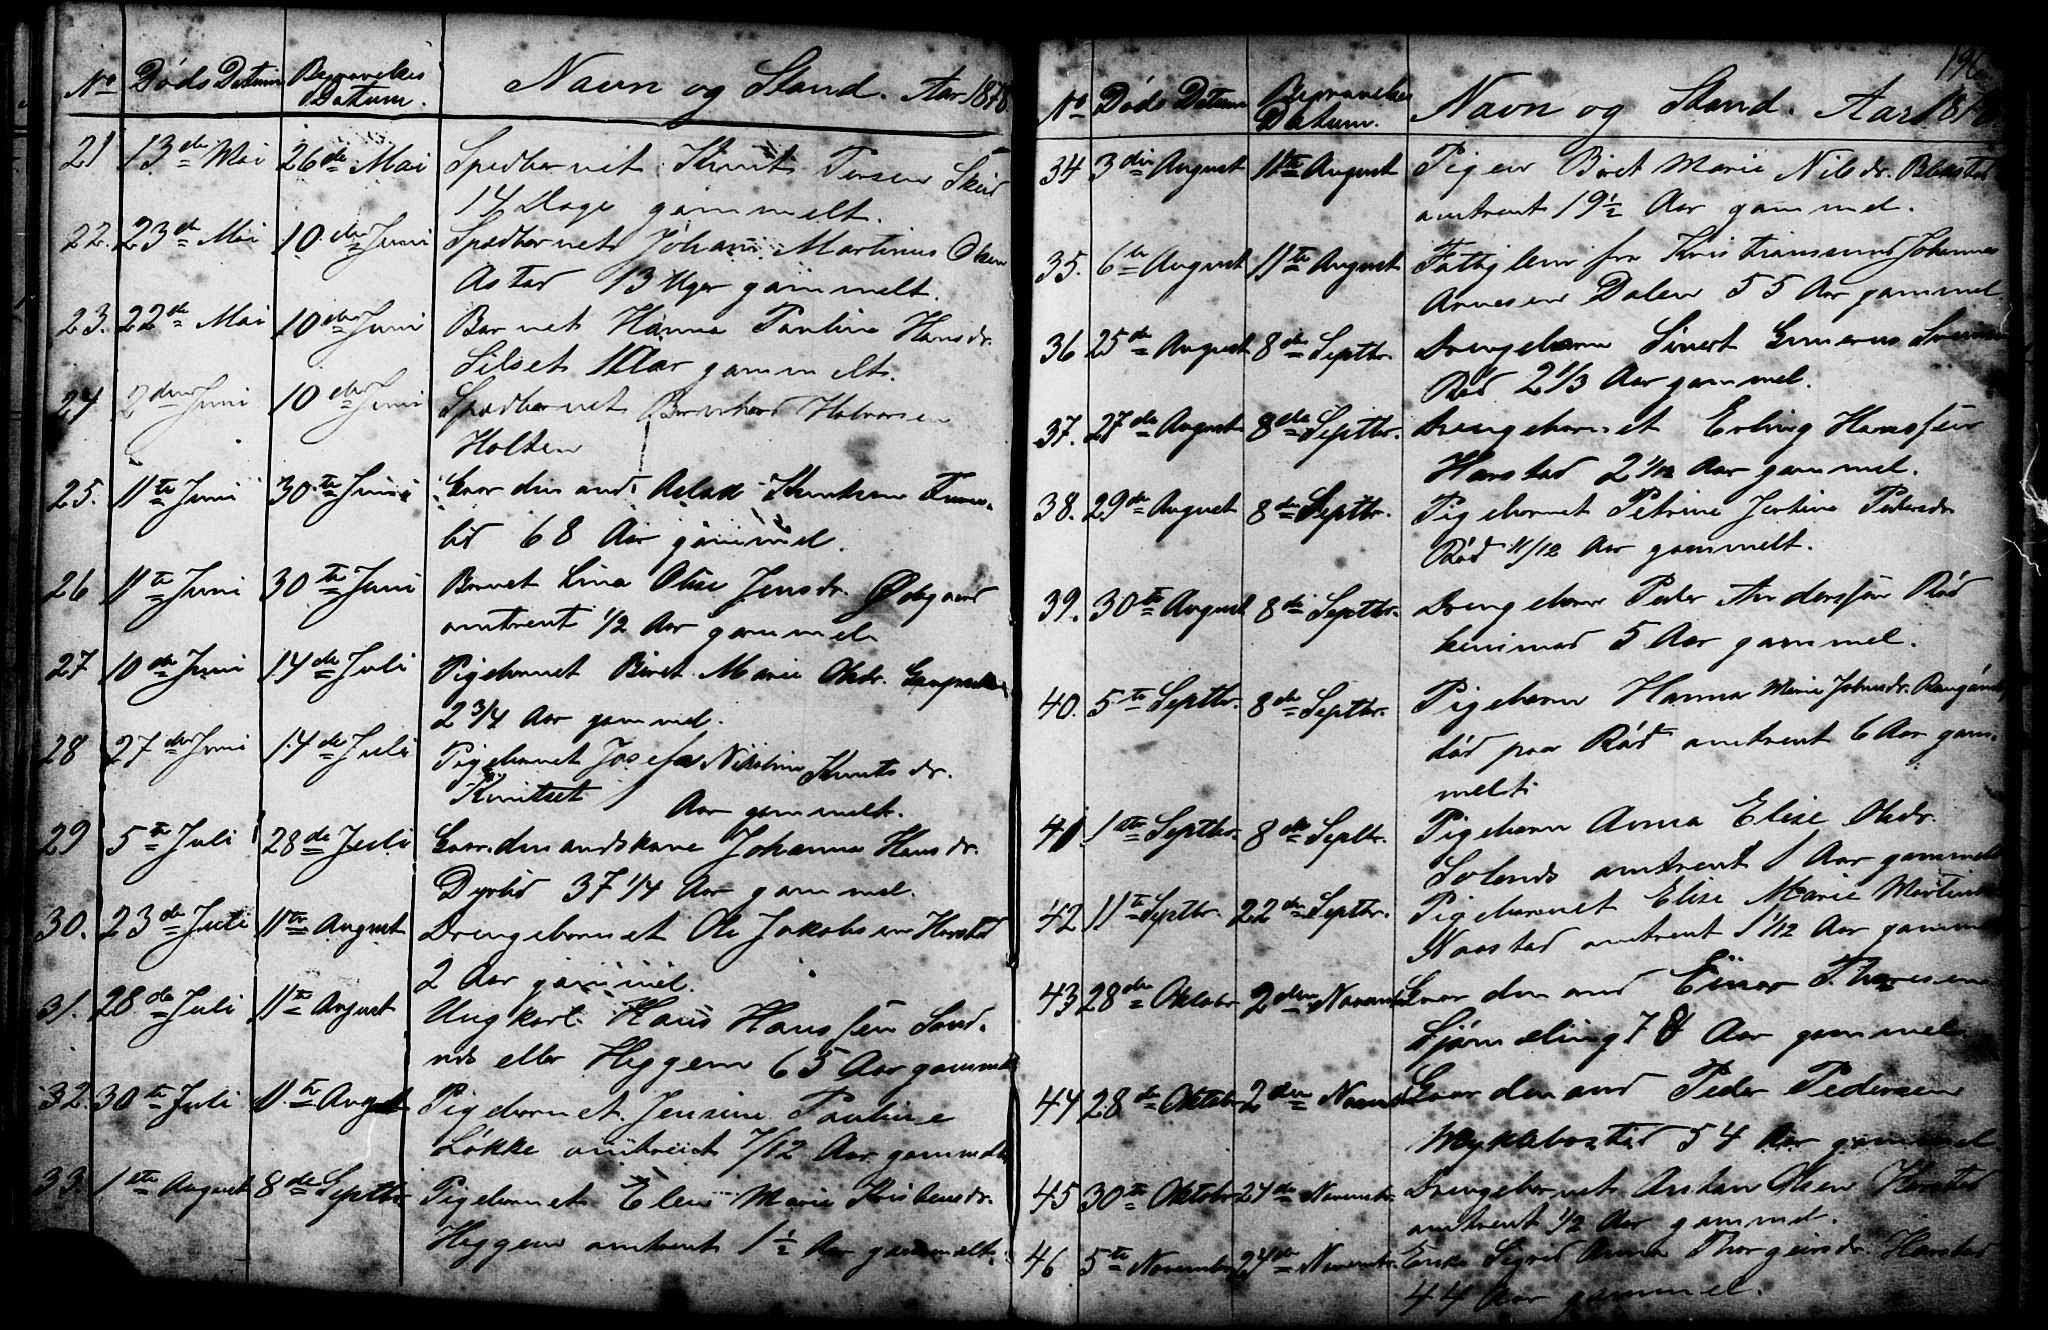 No Døds Datum Begravelses Datum. Navn og Stand. Aar 1878
21 13de Mai 26de Mai Spædbarnet Knut Iversen Skeid
14 Dage gammelt.
22. 23de Mai 10de Juni Spædbarnet Johan Martinus Olsen
Astad 13 Uger gammelt.
23. 22de Mai 10de Juni Barnet Hanna Pauline Hansdr.
Silset 1 Aar gammelt.
24 2den Juni 10de Juni Spædbarnet Bernhard Halvorsen
Holten
25. 11te Juni 30te Juni Gaardmand Aslak Knutsen
68 Aar gammel.
26 11te Juni 30te Juni Barnet Lina Oline Jensdr. Ødegaard
omtrent 1/2 Aar gammel
27 10de Juni 14de Juli Pigebarnet Beret Marie Olsdr.
2 3/4 Aar gammel.
28 27de Juni 14de Juli Pigebarnet Josefa Nikoline Knutsdr.
1 Aar gammelt.
29 5te Juli 28de Juli Gaardmandskone Johanna Hansdr.
Dyrlid 37 1/4 Aar gammel.
30. 23de Juli 11te August Drengebarnet Ole Jakobsen Harstad
2 Aar gammel.
31. 28de Juli 11te August Ungkarl Hans Hansen Sand-
nes eller Heggem 65 Aar gammel
32. 30te Juli 11te August Pigebarnet Jensine Pauline
Løkke omtrent 7/12 Aar gammelt
33. 1ste August 8de Septbr. Pigebarnet Elen Marie Kristensdr.
Heggem omtrent 1 1/2 Aar gammelt.
196
No Døds Datum Begravelses Datum. Navn og Stand. Aar 1878
34 3die August 11te August Pigen Beret Marie Nilsdr.
omtrent 19 1/2 Aar gammel.
35. 6te August 11te August Fattiglem fra Kristianssund Johannes
Arnesen Dalen 55 Aar gammel.
36 25de August 8de Septbr. Drengebarn Sivert Gunerius
Rød 2 1/3 Aar gammel.
37. 27de August 8de Septbr. Drengebarnet Erling Hansen
Harstad 2 1/12 Aar gammel.
38. 29de August 8de Septbr. Pigebarnet Petrine Jertine Pedersdr.
Rød 11/12 Aar gammelt.
39. 30te August 8de Septbr. Drengebarn Peder Andersen Rød
5 Aar gammel.
40. 5te Septbr. 8de Septbr. Pigebarn Hanna Marie Johnsdr.
død paa Rød omtrent 6 Aar gam-
melt.
41. 1ste Septbr. 8de Septbr. Pigebarn Anna Elise Olsdr.
omtrent 1 Aar gammelt
42 11te Septbr. 22de Septbr. Pigebarnet Elise Marie
Naastad omtrent 1 1/12 Aar gammel
43 28de Oktobr 2den Novembr Gaardmand Einar
78 Aar gammel
44 28de Oktobr 2den Novembr Gaardmand Peder Pedersen
Myklebostad 54 Aar gammel
45 30te Oktobr 24de Novembr. Drengebarnet Anton Olsen Harstad
omtrent 1/2 Aar gammel.
46 5te November 24de Novembr. Enke Sigrid Anna Thorgeirsdr. Harstad
44 Aar gammel.